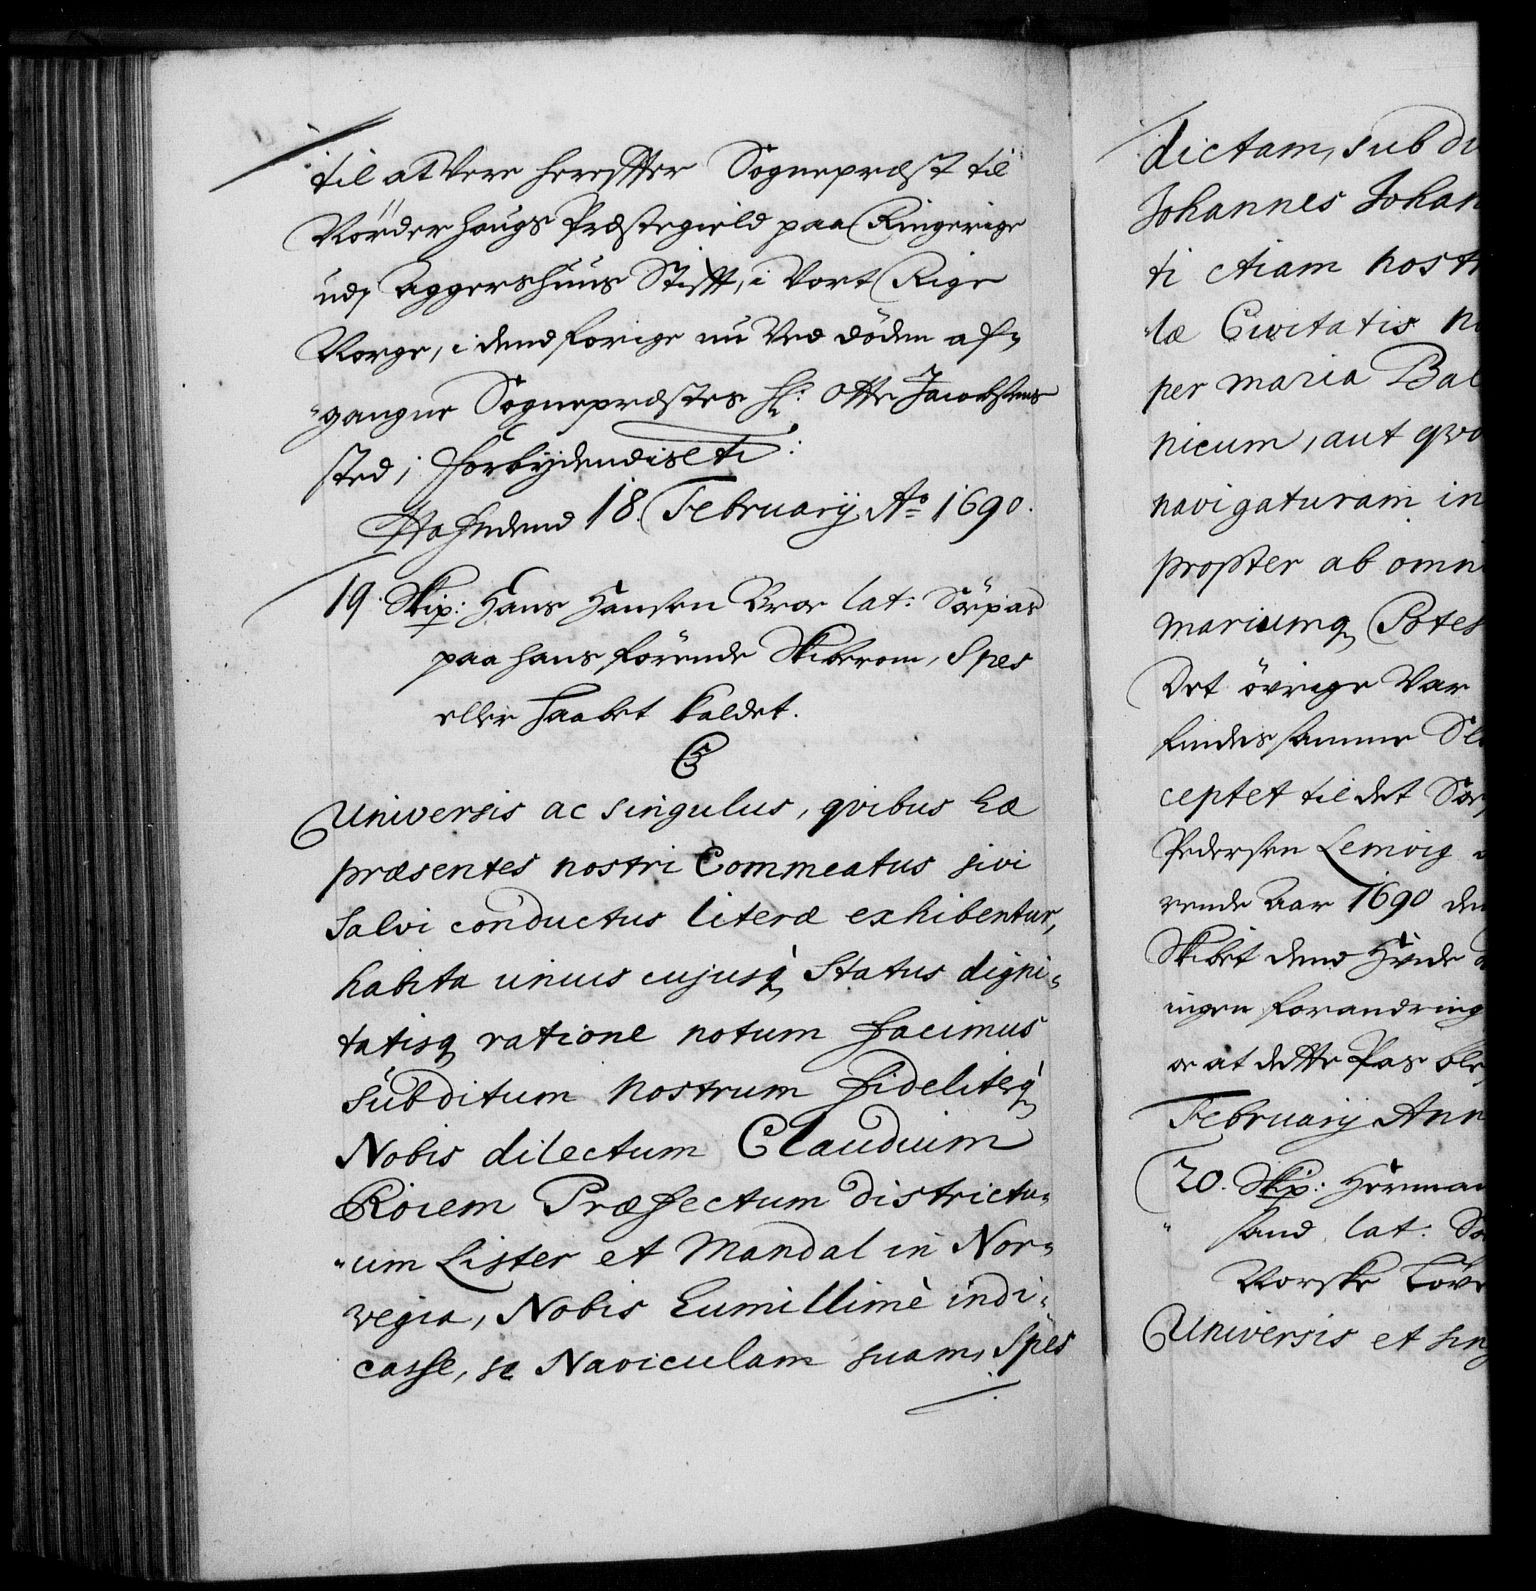 til at Være herefter Sognepræst til
Nörderhaugs Præstegield paa Ringerige
udj Aggershuus Stifft, i Vort Rige
Norge, i dend forige nu Ved döden af-
gangne Sognepræstes Hr: Otte Jacobsens
sted; Forbydendis etc:
Hafn dend 18. February Ao 1690.
19. Skip: Hans Hansen Broe lat: Söepas
paa hans förende Skiberom, Spes
eller Haabet kaldet.
C5
Universis ac singulus, qvibus hæ
præsentes nostri Commeatus sivi
salvi conductus literæ exhibentur,
habita unius cujusq Status digni-
tatisq ratione notum facimus
subditum nostrum fideliterq
Nobis dilectum Claudium
Roiem Præfectum districtu-
um Lister et Mandal in Nor-
vegia, Nobis humillimè indi-
casse, se Naviculam suam, Spes
dictam, sub di
Johannes Johan
ti etiam nostr
læ Civitatis
per maria Bal
nicum, aut qvo
navigaturam in
propter ab omni
mariumq Potes
Det övrige Var
findes samme
ceptet til det Söe
Pedersen Lemvig
rende Aar 1690 den
Skibet dend Hvide
ingen forandring
oc at dette Pas ble
February Ann
20. Skip: Herman
sand lat: Sö
Norske Löve
Universis et sing